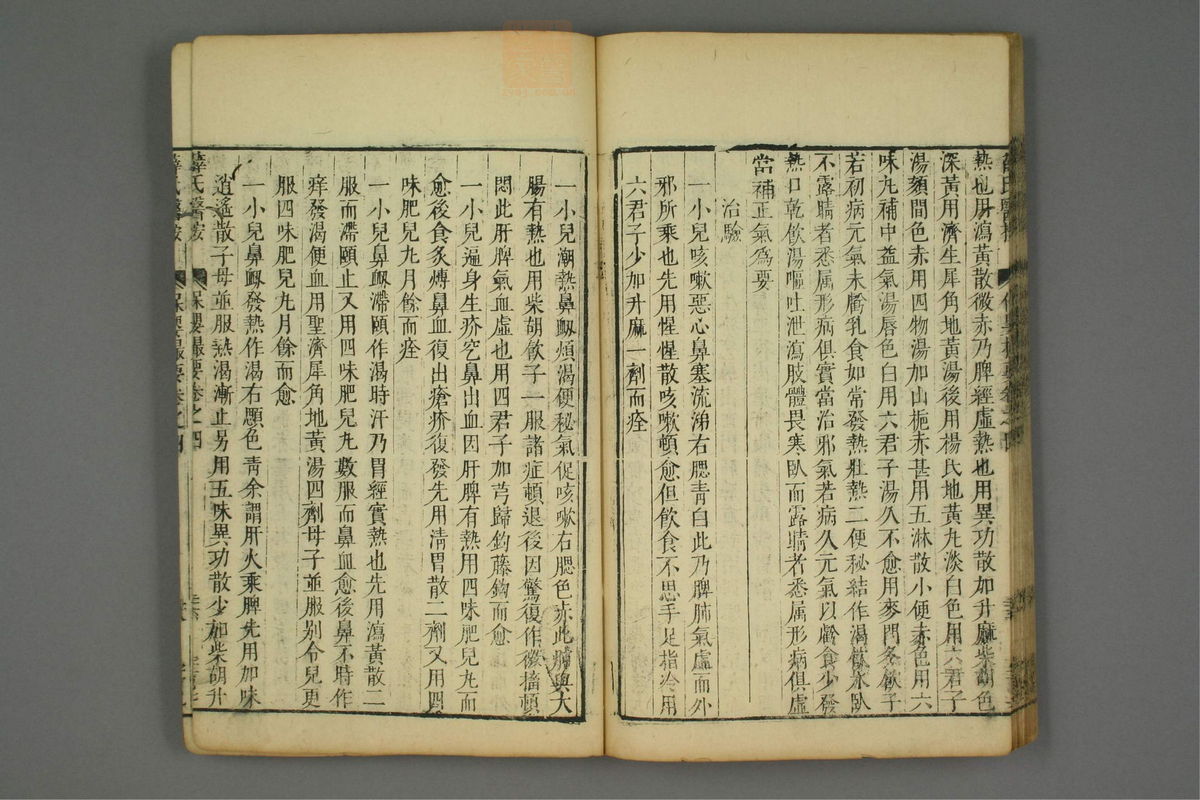 熱也用瀉黃散微赤乃脾經虛熱也用異功散加升麻柴胡色
深黃用濟生犀角地黃湯後用楊氏地黃九淡白色用六君子
湯頦間色赤用四物湯加山梔赤甚用五淋散小便赤色用六
味九補中益氣湯唇色白用六君子湯久不愈用麥門冬飲子
若初病元氣未虧乳食如常發熱壯熱二便秘結作渴飲水臥
不露睛者悉属形病俱實當治邪氣若病久元氣以虧食少發
熱口乾飲湯嘔吐泄瀉肢體畏寒臥而露睛者悉属形病俱虛
當補正氣爲要
治驗
一小兒咳嗽惡心鼻塞流涕右腮青白此乃脾肺氣虛而外
邪所乘也先用惺惺散咳嗽頓愈但飲食不思手足指冷用
六君子少加升麻一劑而痊
一小兒潮熱鼻衂煩渴便秘氣促咳嗽右腮色赤此肺與大
腸有熱也用柴胡飲子一服諸症頓退後因驚復作微搐頓
悶此肝脾氣血虛也用四君子加芎歸鈎藤鈎而愈
一小兒遍身生疥穵鼻出血因肝脾有熱用四味肥兒九而
愈後食炙煿鼻血復出瘡疥復發先用清胃散二劑又用四
味肥兒九月餘而痊
一小兒鼻衂滯頤作渴時汗乃胃經實熱也先用瀉黃散二
服而滯頤止又用四味肥兒九數服而鼻血愈後鼻不時作
痒發渴便血用聖濟犀角地黃湯四劑母子並服别令兒更
服四味肥兒九月餘而愈
一小兒鼻衂發熱作渴右顋色青余謂肝火乘脾先用加味
逍遙散子母並服熱渴漸止另用五味異功散少加柴胡升
薛氏醫按
保嬰撮要卷之四